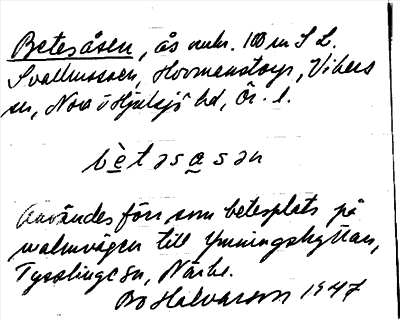 Betesåsen, ås omkr. 100 m S L.
Svallmossen, Hovmanstorp, Vikers
sn, Nora o Hjulsjö bd, Ör. l.
bètəsa̲sən
Användes förr som betesplats på
malmvägen till Yxningshyttan,
Tysslinge sn, Närke.
Bo Halvarson 1947